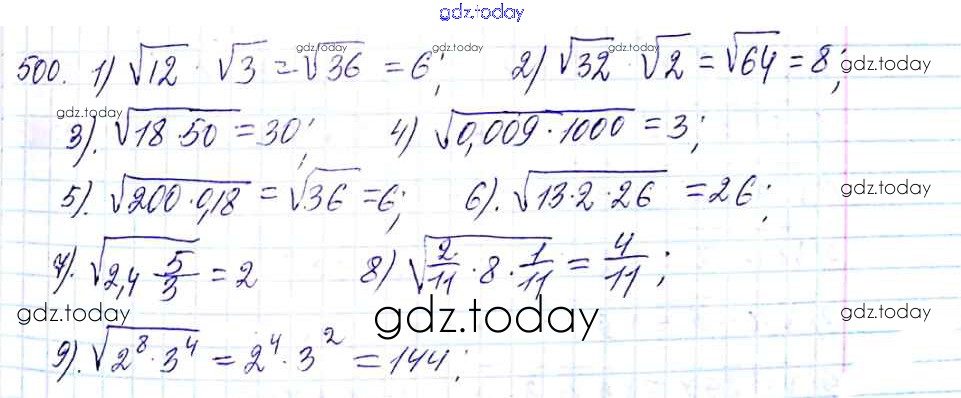 gdz.today
500. 1) √12 · √3 = √36 = 6; 2) √32 · √2 = √64 = 8;
gdz.today gdz.today gdz.today
gdz.today
3). √18·50 = 30; 4) √0,009·1000 = 3;
5). √200·0,18 = √36 = 6; 6). √13·2·26 = 26;
gdz.today
7). √2,4 · 5/3 = 2 8) √2/11 · 8 · 1/11 = 4/11;
gdz.today gdz.today gdz.today
9). √2⁸·3⁴ = 2⁴·3² = 144;